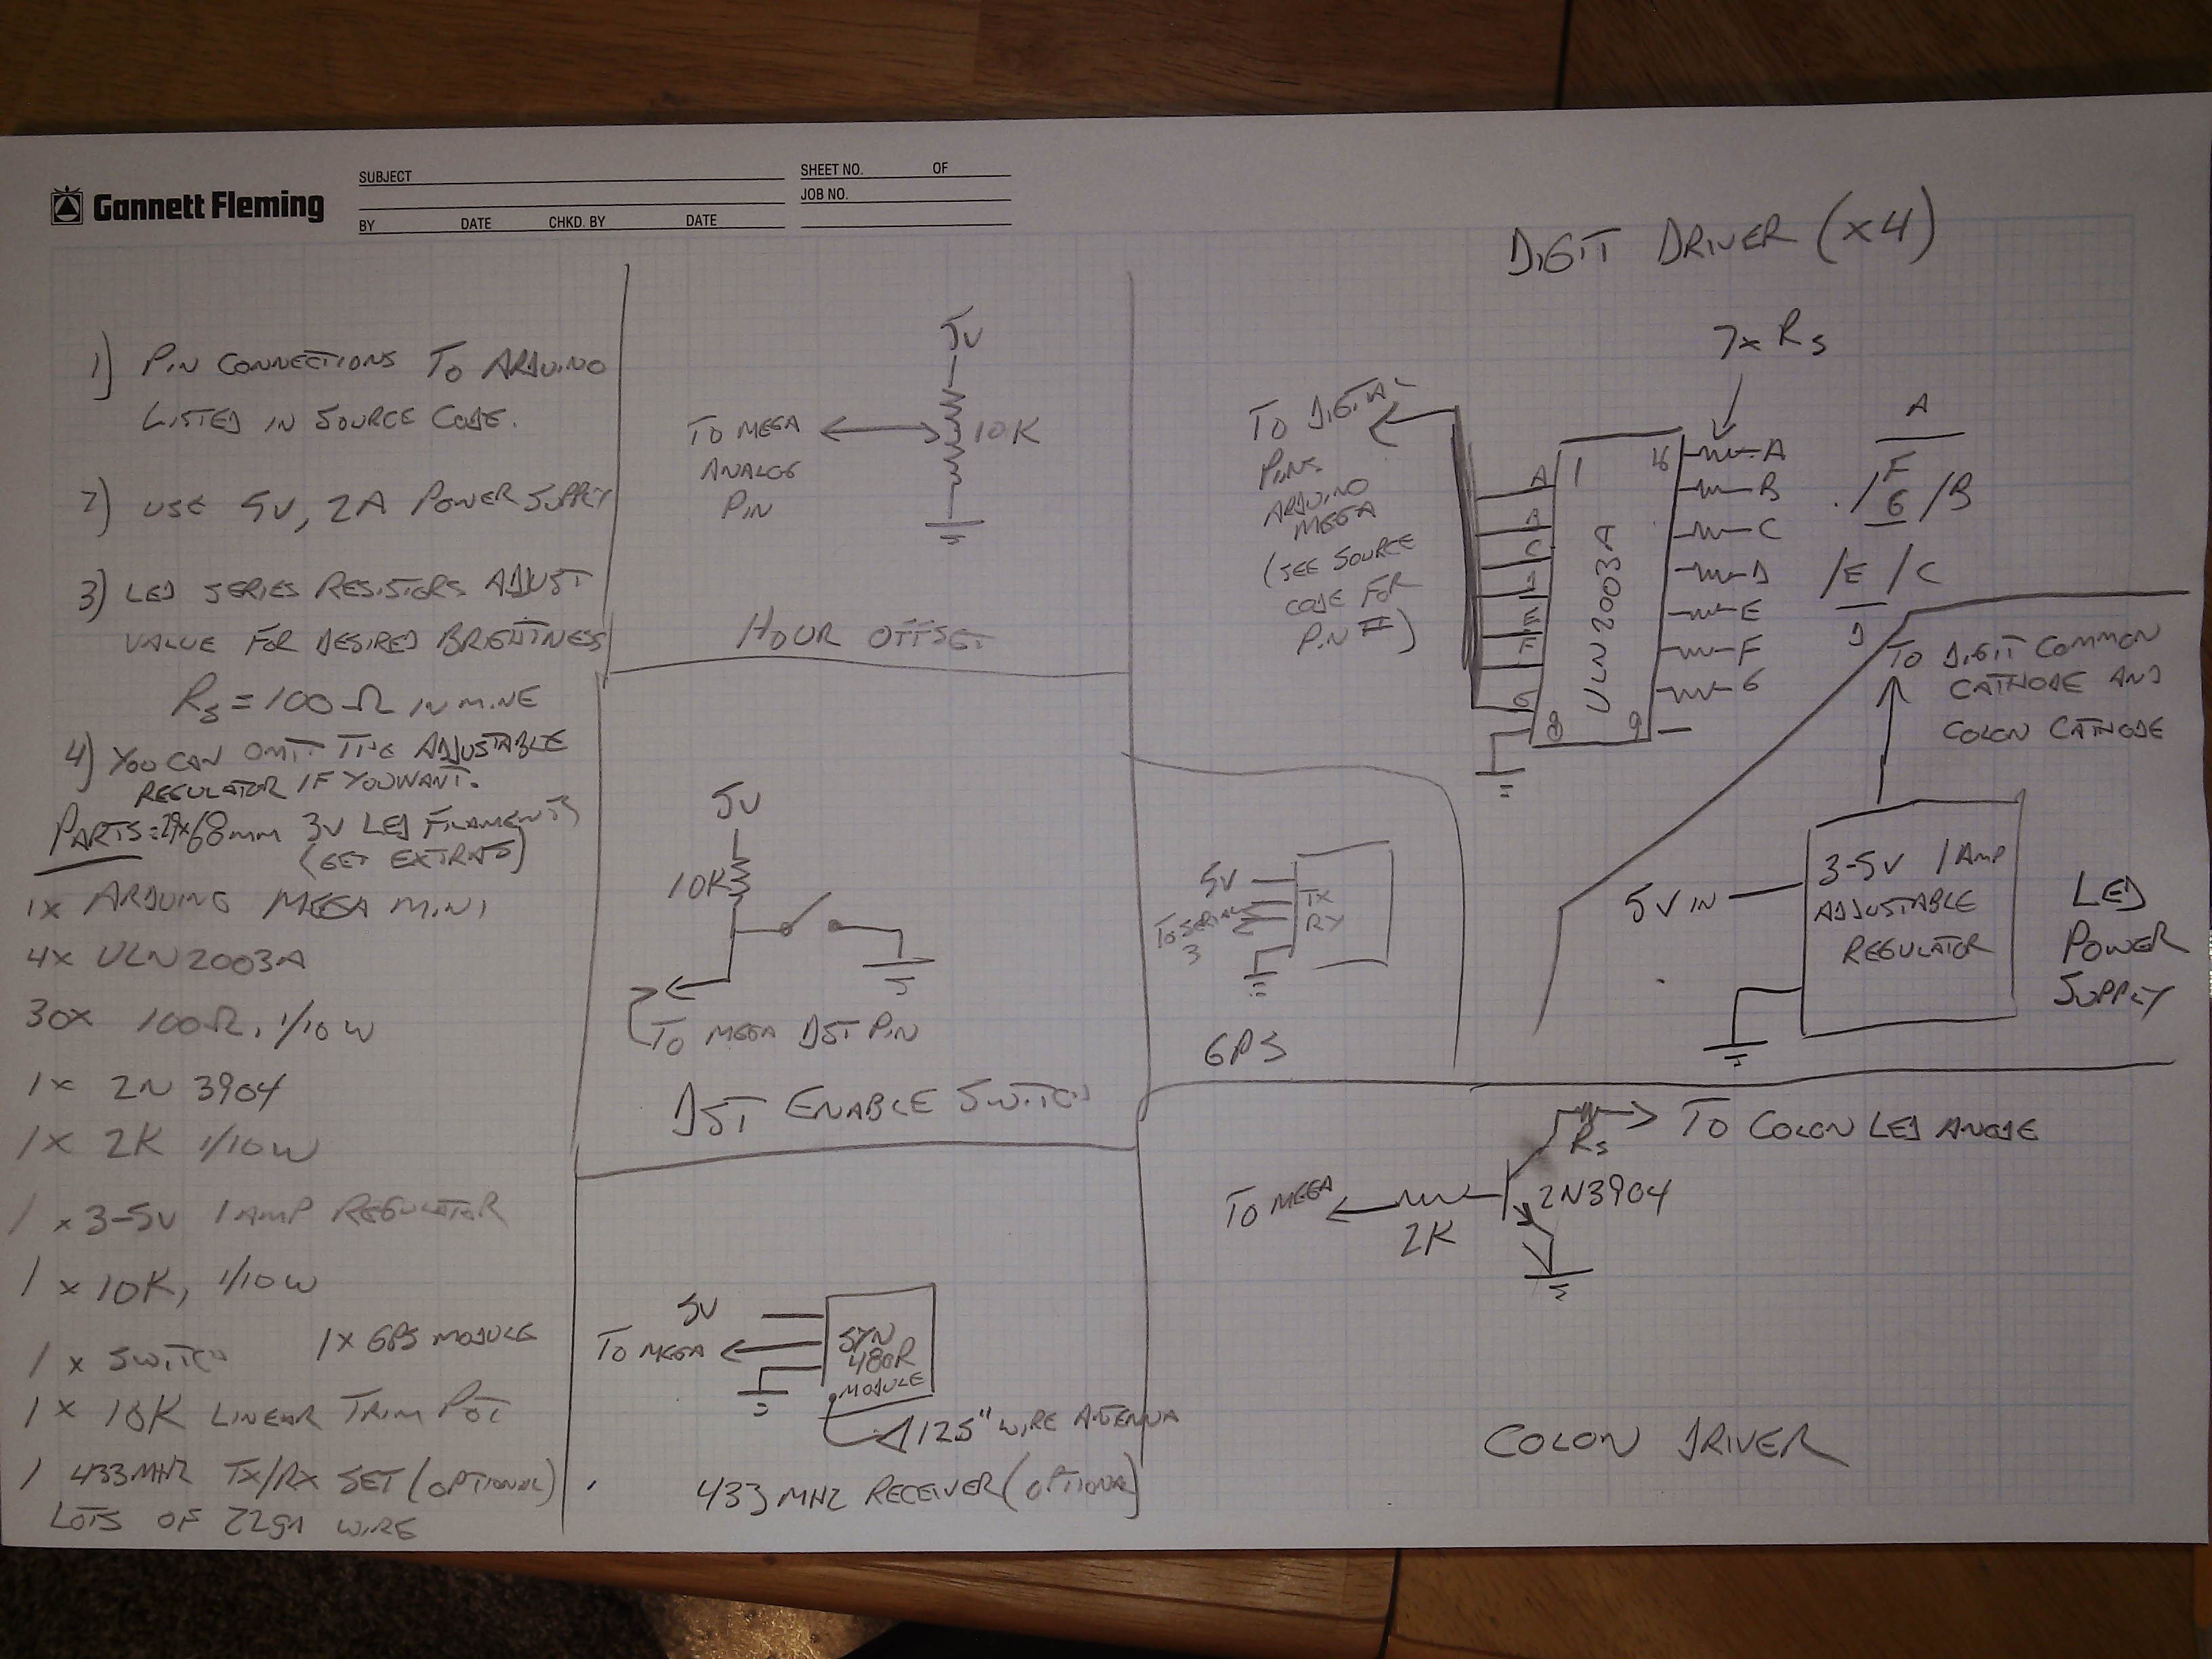 Gannett Fleming
SUBJECT
SHEET NO. OF
JOB NO.
BY DATE CHKD. BY DATE
1) PIN CONNECTIONS TO ARDUINO
LISTED IN SOURCE CODE.
2) USE 5V, 2A POWER SUPPLY
3) LED SERIES RESISTORS ADJUST
VALUE FOR DESIRED BRIGHTNESS
Rs = 100 Ω IN MINE
4) YOU CAN OMIT THE ADJUSTABLE
REGULATOR IF YOU WANT.
PARTS: 29x68mm 3V LED FILAMENTS
(GET EXTRAS)
1x ARDUINO MEGA MINI
4x ULN2003A
30x 100Ω, 1/10W
1x 2N3904
1x 2K 1/10W
1 x 3-5V 1 AMP REGULATOR
1 x 10K, 1/10W
1 x SWITCH 1x GPS MODULE
1 x 10K LINEAR TRIM POT
1 433MHZ TX/RX SET (OPTIONAL)
LOTS OF 22ga WIRE
5V
10K
TO MEGA
ANALOG
PIN
HOUR OFFSET
5V
10K
TO MEGA DST PIN
DST ENABLE SWITCH
5V
TO MEGA
SYN
480R
MODULE
125" WIRE ANTENNA
433 MHZ RECEIVER (OPTIONAL)
DIGIT DRIVER (x4)
7x Rs
TO DIGITAL
PINS
ARDUINO
MEGA
(SEE SOURCE
CODE FOR
PIN #)
A 1 16 A
B B
C C
D D
E E
F F
G G
8 9
ULN2003A
A
F
G B
E C
D
5V
TO SERIAL
3
TX
RX
GPS
TO DIGIT COMMON
CATHODE AND
COLON CATHODE
5V IN
3-5V 1 AMP
ADJUSTABLE
REGULATOR
LED
POWER
SUPPLY
Rs
TO COLON LED ANODE
TO MEGA
2K
2N3904
COLON DRIVER